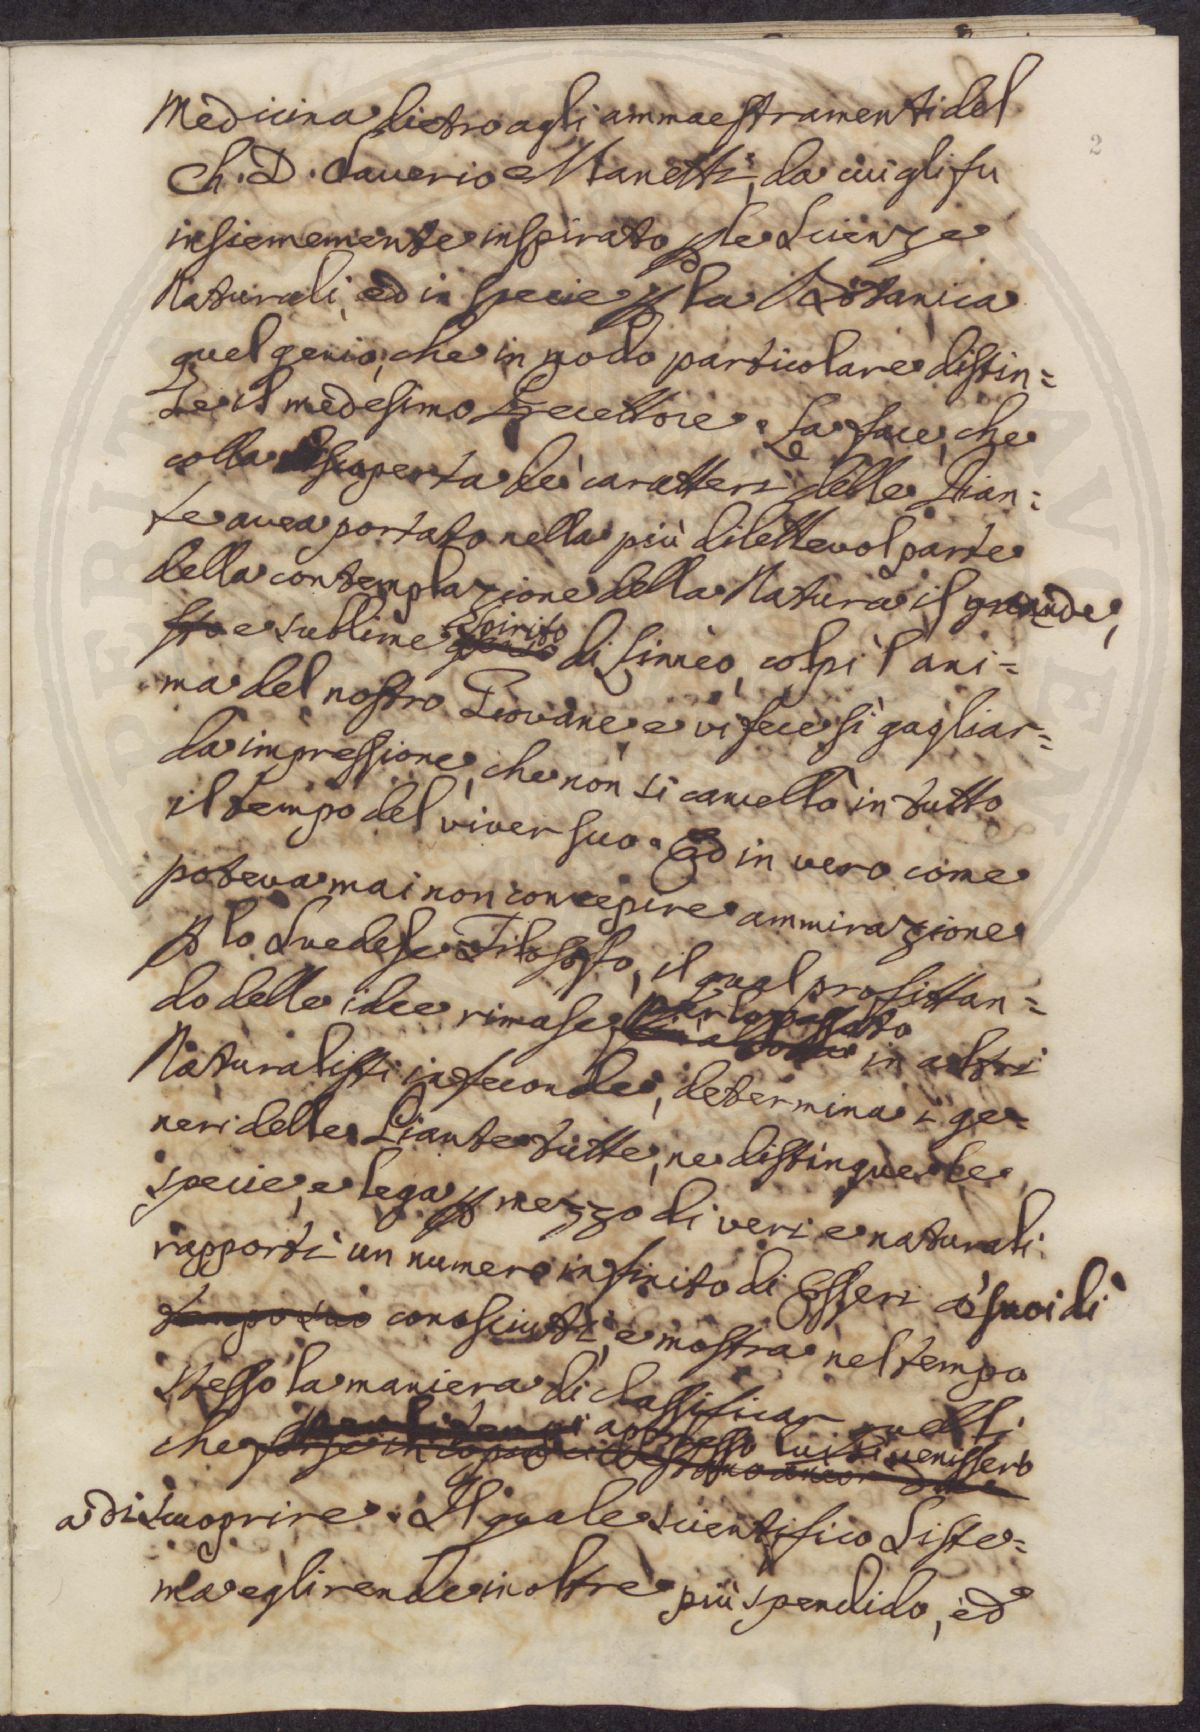 2
Medicina dietro agli ammaestramenti del
Ch. D. Saverio Manetti, da cui gli fu
insiememente inspirato p le Scienze
Naturali, ed in specie p la Botanica
quel genio, che in modo particolare distin=
se il medesimo Precettore. La face, che
colla scoperta de' caratteri delle Pian=
te avea portato nella più dilettevol parte
della contemplazione della Natura il grande,
e sublime Spirito di Linnèo, colpì l'ani=
ma del nostro Giovane, e vi fece sì gagliar=
da impressione, che non si cancellò in tutto
il tempo del viver suo. Ed in vero come
poteva mai non concepire ammirazione
p lo Svedese Filosofo, il qual profittan=
do delle idee rimase per lo passato in altri
Naturalisti infeconde, determina i ge=
neri delle Piante tutte, ne distingue le
specie, e lega p mezzo di veri e naturali
rapporti un numero infinito di Esseri a' suoi dì
tempo suo conosciuti, e mostra nel tempo
stesso la maniera di classificar quelli
che appresso lui si venissero
a discuoprire. Il quale scientifico Siste=
ma egli rende inoltre più spendido, ed